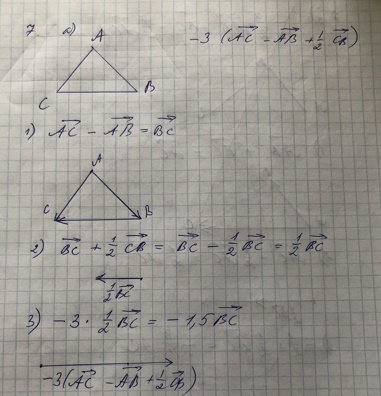 7 а) A −3 (AC⃗ − AB⃗ + ½ CB⃗)
C B
1) AC⃗ − AB⃗ = BC⃗
A
C B
2) BC⃗ + ½ CB⃗ = BC⃗ − ½ BC⃗ = ½ BC⃗
½ BC⃗
3) −3 · ½ BC⃗ = −1,5 BC⃗
−3(AC⃗ − AB⃗ + ½ CB⃗)